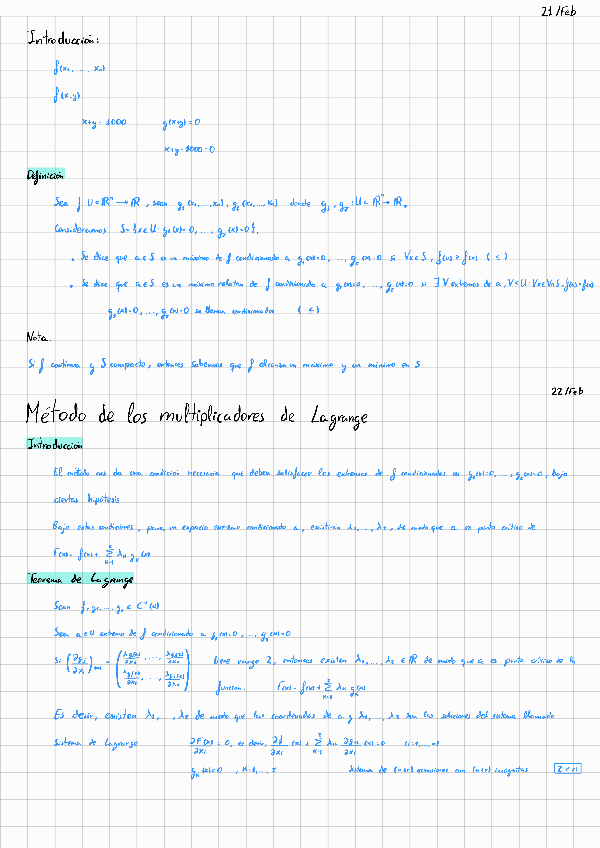 21/Feb
Introducción:
f(x₁, ... xₙ)
f(x,y)
x+y = 1000 g(x+y) = 0
x+y-1000=0
Definición
Sea f U⊂ℝⁿ → ℝ, sean g₁(x₁,...,xₙ), g₂(x₁,...,xₙ) donde g₁, g₂: U⊂ ℝⁿ→ ℝ.
Consideramos S={x∈U: g₁(x)=0, ..., g₂(x)=0}.
• Se dice que a∈S es un máximo de f condicionado a g₁(x)=0, ..., g₂(x)=0 si ∀x∈S, f(a) ≥ f(x) (≤)
• Se dice que a∈S es un máximo relativo de f condicionado a g₁(x)=0, ..., g₂(x)=0 si ∃ V entorno de a, V⊂U: ∀x∈V∩S, f(a)≥f(x)
g₁(x)=0, ..., g₂(x)=0 se llaman condicionados (≤)
Nota.
Si f continua y S compacto, entonces sabemos que f alcanza un máximo y un mínimo en S
22/Feb
Método de los multiplicadores de Lagrange
Introducción
El método nos da una condición necesaria que deben satisfacer los extremos de f condicionados en g₁(x)=0, ..., g₂(x)=0, bajo
ciertas hipótesis
Bajo estas condiciones, para un espacio extremo condicionado a, existirán λ₁, ..., λ₂, de modo que a es punto crítico de
F(x)= f(x)+ Σ λₖ gₖ(x)
Teorema de Lagrange
Sean f, g₁, ..., g₂ ∈ C¹(U)
Sea a∈U extremo de f condicionado a g₁(x)=0, ..., g₂(x)=0
Si tiene rango 2, entonces existen λ₁, ..., λ₂ ∈ ℝ de modo que a es punto crítico de la
función. F(x)= f(x)+ Σ λₖ gₖ(x)
Es decir, existen λ₁, ..., λ₂ de modo que las coordenadas de a y λ₁, ..., λ₂ son las soluciones del sistema llamado
Sistema de Lagrange ∂F/∂xᵢ (x) = 0, es decir, ∂f/∂xᵢ (x) + Σ λₖ ∂gₖ/∂xᵢ (x) = 0 (i=1,...,n)
gₖ(x)=0, k=1,...,2 sistema de (n+r) ecuaciones con (n+r) incógnitas 2<n